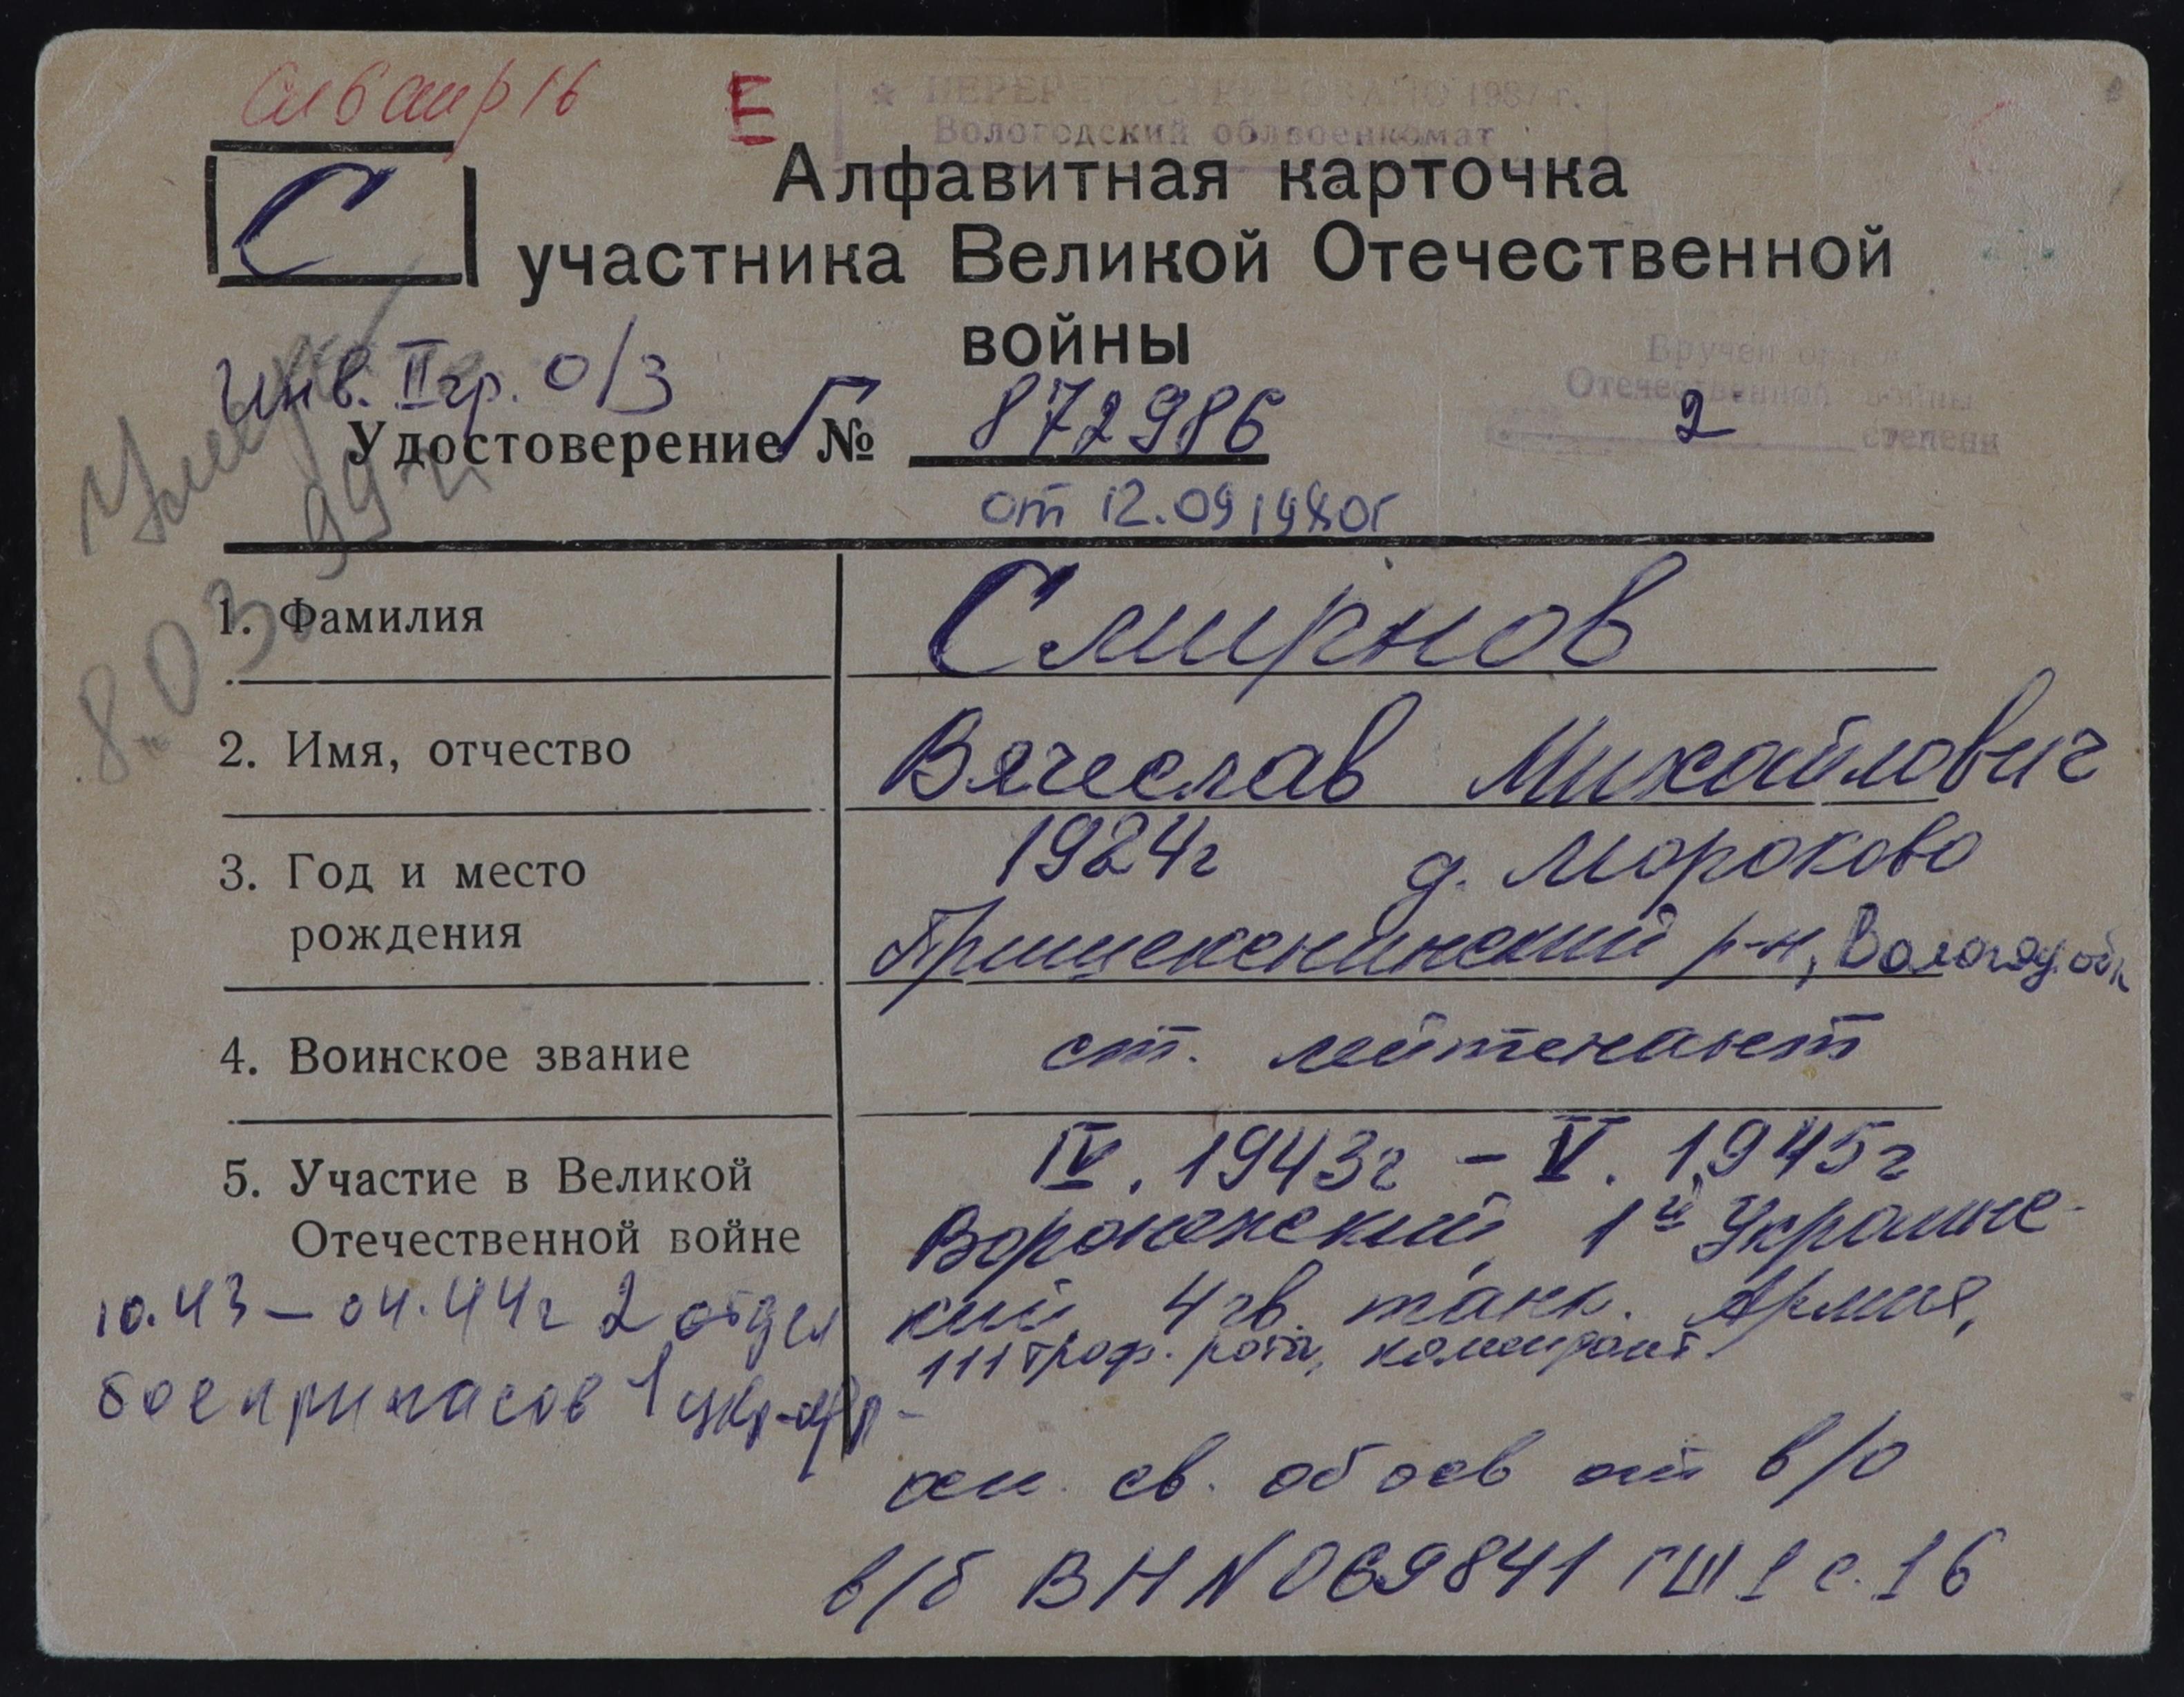 * ПЕРЕРЕГИСТРИРОВАНО 1987 г.
Вологодский облвоенкомат
С
Алфавитная карточка
участника Великой Отечественной
войны
Инв. II гр. О/З
Удостоверение Г № 872986
от 12.09 1980г
Вручен орден
Отечественной войны
2 степени
Умер
8.03.99г
1. Фамилия Смирнов
2. Имя, отчество Вячеслав Михайлович
3. Год и место 1924г д. Мороково
рождения Пришекснинский р-н, Вологод. обл
4. Воинское звание ст. лейтенант
5. Участие в Великой IV. 1943г – V. 1945г
Отечественной войне Воронежский, 1й Украинс-
кий 4 гв. танк. Армия,
111 троф. рота, комендант.
10.43 – 04.44г 2 отдел
боеприпасов 1 укр. фр
осн. св. об осв от в/о
в/б ВН N 069841 ГШ 1 с. 16